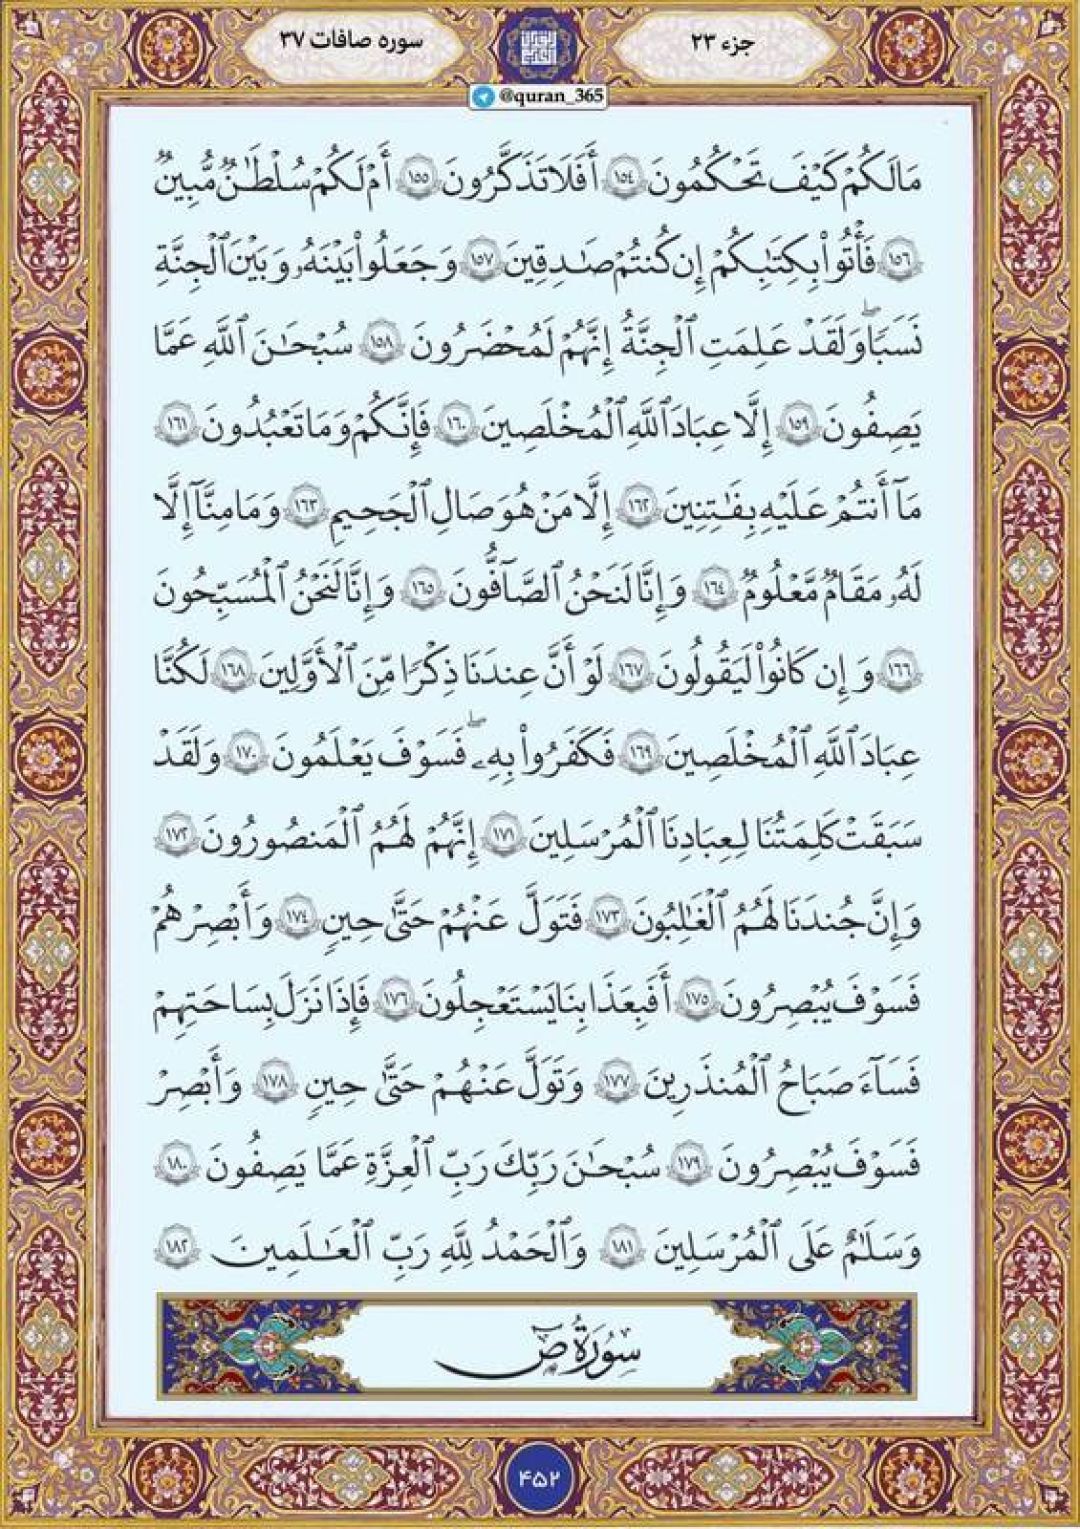 جزء ۲۳
سوره صافات ۳۷
@quran_365
مَا لَكُمْ كَيْفَ تَحْكُمُونَ ١٥٤ أَفَلَا تَذَكَّرُونَ ١٥٥ أَمْ لَكُمْ سُلْطَٰنٌ مُّبِينٌ
١٥٦ فَأْتُوا۟ بِكِتَٰبِكُمْ إِن كُنتُمْ صَٰدِقِينَ ١٥٧ وَجَعَلُوا۟ بَيْنَهُۥ وَبَيْنَ ٱلْجِنَّةِ
نَسَبًا ۚ وَلَقَدْ عَلِمَتِ ٱلْجِنَّةُ إِنَّهُمْ لَمُحْضَرُونَ ١٥٨ سُبْحَٰنَ ٱللَّهِ عَمَّا
يَصِفُونَ ١٥٩ إِلَّا عِبَادَ ٱللَّهِ ٱلْمُخْلَصِينَ ١٦٠ فَإِنَّكُمْ وَمَا تَعْبُدُونَ ١٦١
مَآ أَنتُمْ عَلَيْهِ بِفَٰتِنِينَ ١٦٢ إِلَّا مَنْ هُوَ صَالِ ٱلْجَحِيمِ ١٦٣ وَمَا مِنَّآ إِلَّا
لَهُۥ مَقَامٌ مَّعْلُومٌ ١٦٤ وَإِنَّا لَنَحْنُ ٱلصَّآفُّونَ ١٦٥ وَإِنَّا لَنَحْنُ ٱلْمُسَبِّحُونَ
١٦٦ وَإِن كَانُوا۟ لَيَقُولُونَ ١٦٧ لَوْ أَنَّ عِندَنَا ذِكْرًا مِّنَ ٱلْأَوَّلِينَ ١٦٨ لَكُنَّا
عِبَادَ ٱللَّهِ ٱلْمُخْلَصِينَ ١٦٩ فَكَفَرُوا۟ بِهِۦ ۖ فَسَوْفَ يَعْلَمُونَ ١٧٠ وَلَقَدْ
سَبَقَتْ كَلِمَتُنَا لِعِبَادِنَا ٱلْمُرْسَلِينَ ١٧١ إِنَّهُمْ لَهُمُ ٱلْمَنصُورُونَ ١٧٢
وَإِنَّ جُندَنَا لَهُمُ ٱلْغَٰلِبُونَ ١٧٣ فَتَوَلَّ عَنْهُمْ حَتَّىٰ حِينٍ ١٧٤ وَأَبْصِرْهُمْ
فَسَوْفَ يُبْصِرُونَ ١٧٥ أَفَبِعَذَابِنَا يَسْتَعْجِلُونَ ١٧٦ فَإِذَا نَزَلَ بِسَاحَتِهِمْ
فَسَآءَ صَبَاحُ ٱلْمُنذَرِينَ ١٧٧ وَتَوَلَّ عَنْهُمْ حَتَّىٰ حِينٍ ١٧٨ وَأَبْصِرْ
فَسَوْفَ يُبْصِرُونَ ١٧٩ سُبْحَٰنَ رَبِّكَ رَبِّ ٱلْعِزَّةِ عَمَّا يَصِفُونَ ١٨٠
وَسَلَٰمٌ عَلَى ٱلْمُرْسَلِينَ ١٨١ وَٱلْحَمْدُ لِلَّهِ رَبِّ ٱلْعَٰلَمِينَ ١٨٢
سُورَةُ صٓ
۴۵۲